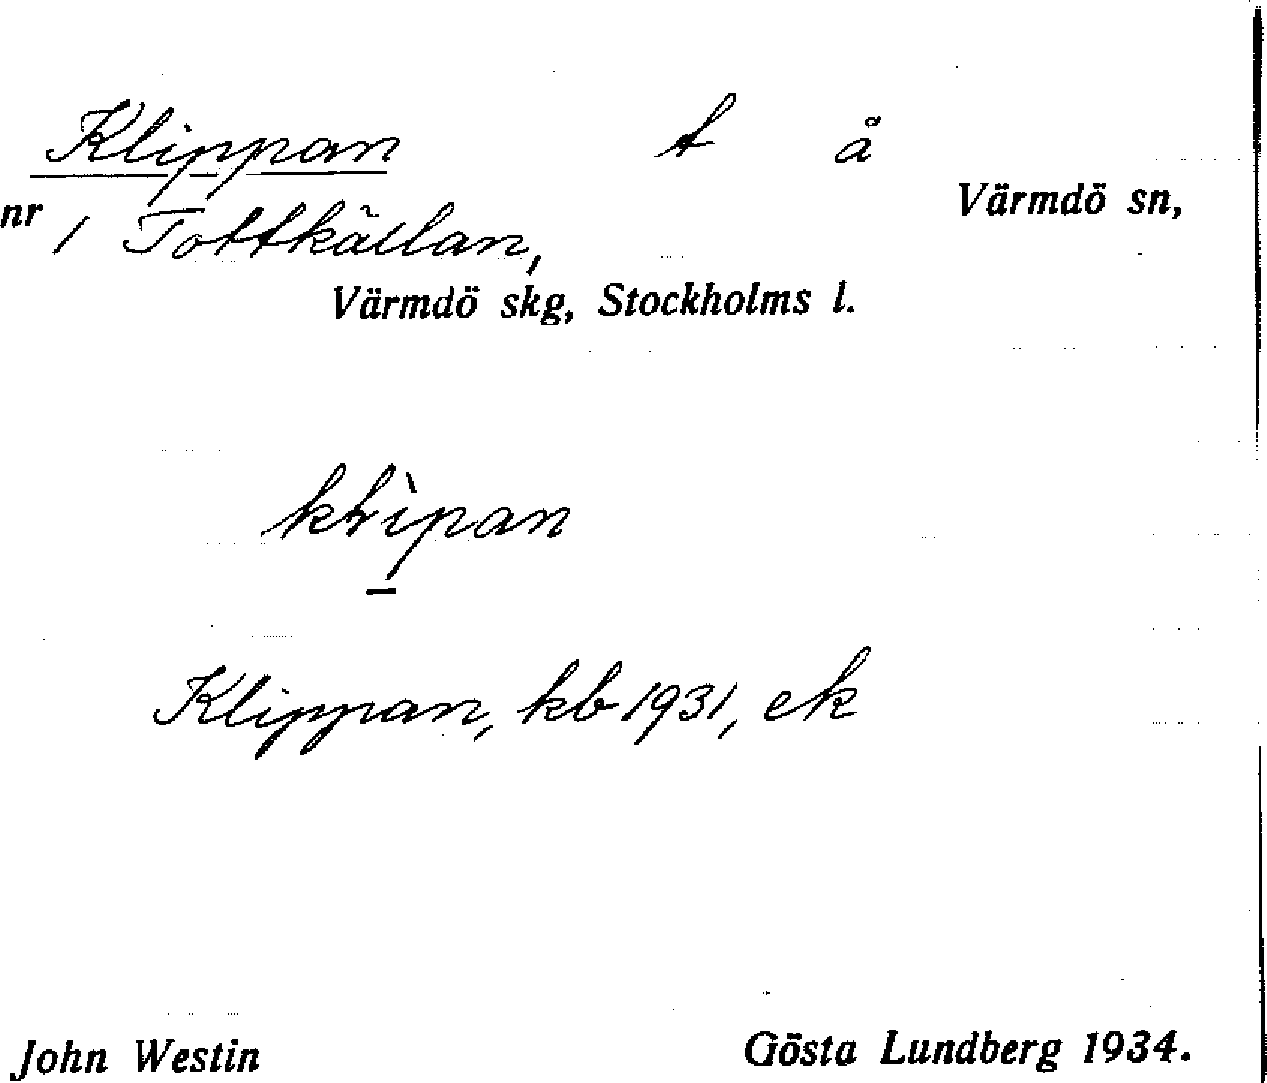 Klippan t å
Värmdö sn,
nr 1 Tottkällan,
Värmdö skg, Stockholms l.
Klippan, kb 1931, ek
John Westin Gösta Lundberg 1934.